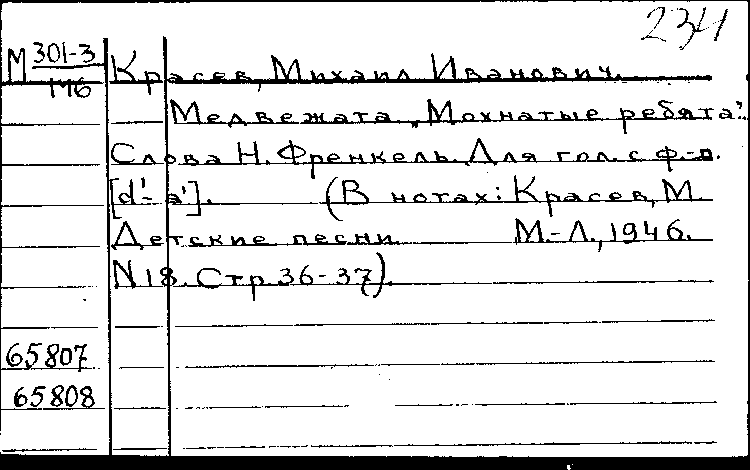 234
М 301-3 Красев, Михаил Иванович.
146
Медвежата „Мохнатые ребята".
Слова Н. Френкель. Для гол. с ф.-п.
[d'-a']. (В нотах: Красев, М.
Детские песни М.-Л., 1946.
N 18. Стр. 36-37).
65807
65808